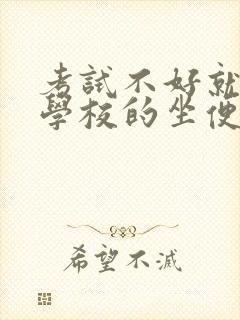 考試不好就
學校的坐便
希望不滅